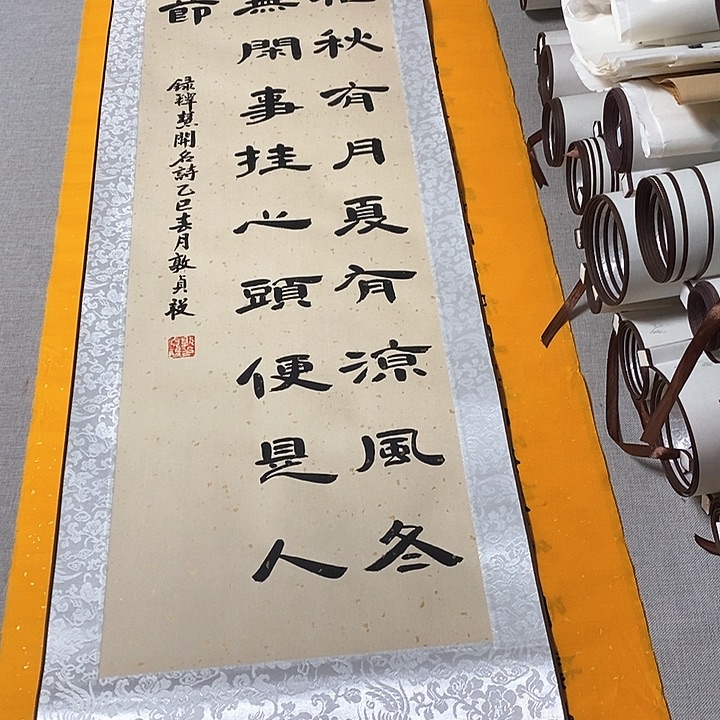 花秋有月夏有涼風冬
無閑事挂心頭便是人
節
録釋慧開名詩乙巳春月敦貞